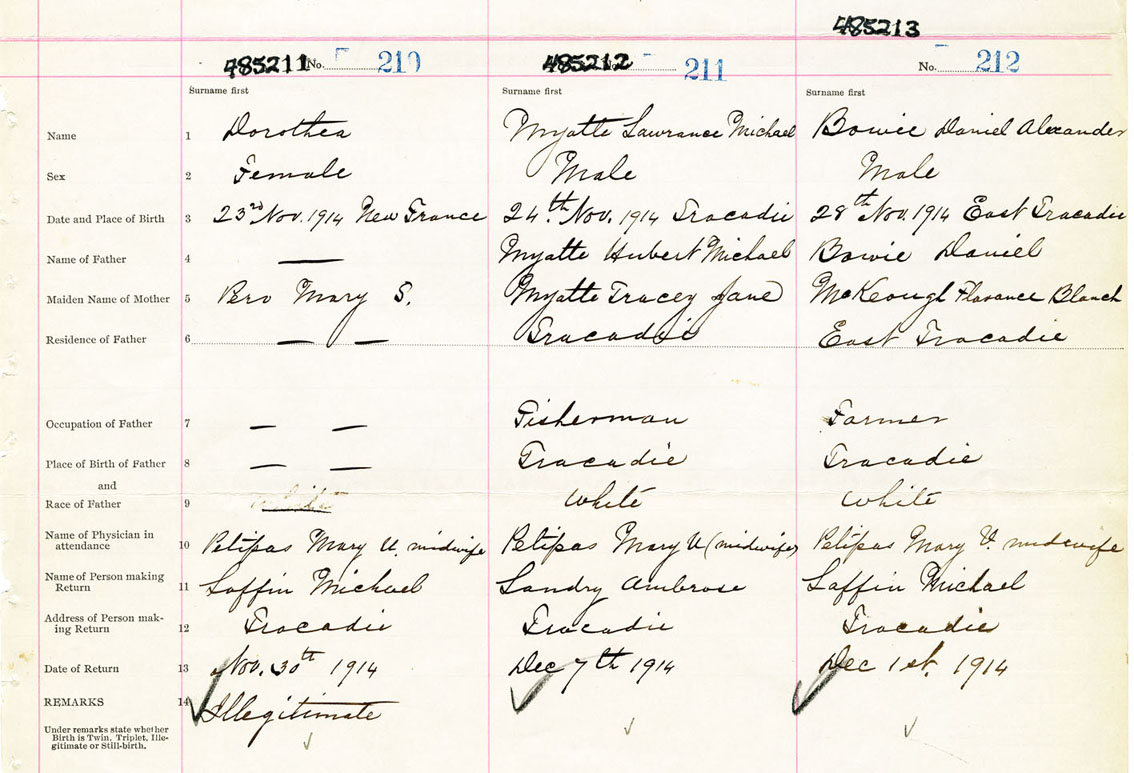 485213
485211 No. 210 485212 No. 211 No. 212
Surname first Surname first Surname first
Name 1 Dorothea Myatte Lawrance Michael Bowie Daniel Alexander
Sex 2 Female Male Male
Date and Place of Birth 3 23rd Nov. 1914 New France 24th. Nov. 1914 Tracadie 28th Nov. 1914 East Tracadie
Name of Father 4 — Myatte Hubert Michael Bowie Daniel
Maiden Name of Mother 5 Bro Mary S. Myatte Tracey Jane McKeough Florance Blanch
Residence of Father 6 — — Tracadie East Tracadie
Occupation of Father 7 — — Fisherman Farmer
Place of Birth of Father 8 — — Tracadie Tracadie
and
Race of Father 9 White White
Name of Physician in
attendance 10 Petipas Mary U. midwife Petipas Mary U (midwife) Petipas Mary V. midwife
Name of Person making
Return 11 Laffin Michael Landry Ambrose Laffin Michael
Address of Person mak-
ing Return 12 Tracadie Tracadie Tracadie
Date of Return 13 Nov. 30th 1914 Dec 7th 1914 Dec 1st. 1914
REMARKS 14 Illegitimate
Under remarks state whether
Birth is Twin, Triplet, Ille-
gitimate or Still-birth.